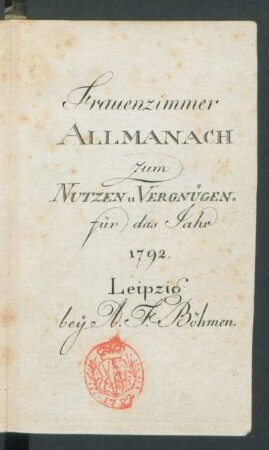 Frauenzimmer
ALLMANACH
zum
NUTZEN u VERGNÜGEN.
für das Jahr
1792.
Leipzig
beÿ A. F. Böhmen.